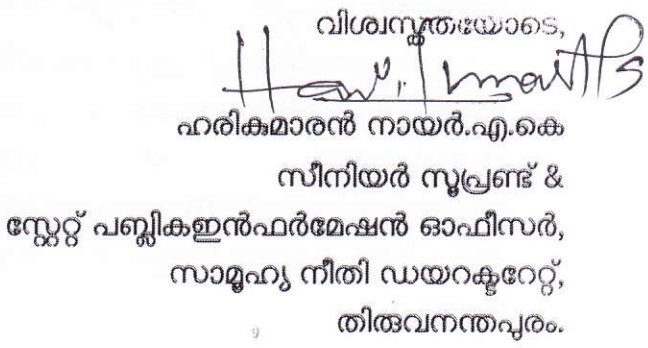 വിശ്വസ്തതയോടെ,
ഹരികുമാരൻ നായർ.എ.കെ
സീനിയർ സൂപ്രണ്ട് &
സ്റ്റേറ്റ് പബ്ലികഇൻഫർമേഷൻ ഓഫീസർ,
സാമൂഹ്യ നീതി ഡയറക്ടറേറ്റ്,
തിരുവനന്തപുരം.